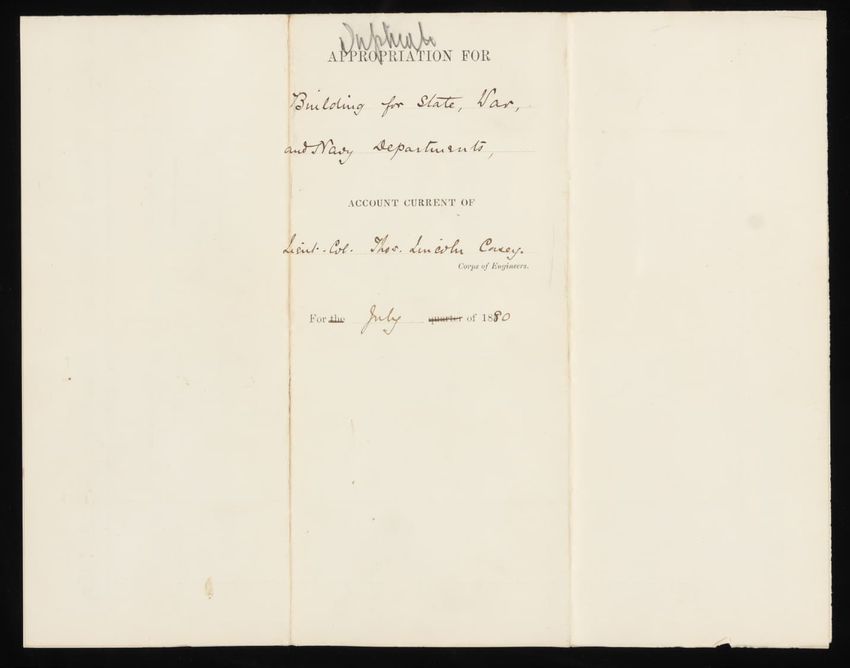 Duplicate
APPROPRIATION FOR
Building for State, War,
and Navy Departments,
ACCOUNT CURRENT OF
Lieut. Col. Thos. Lincoln Casey.
Corps of Engineers.
For the July quarter of 1880